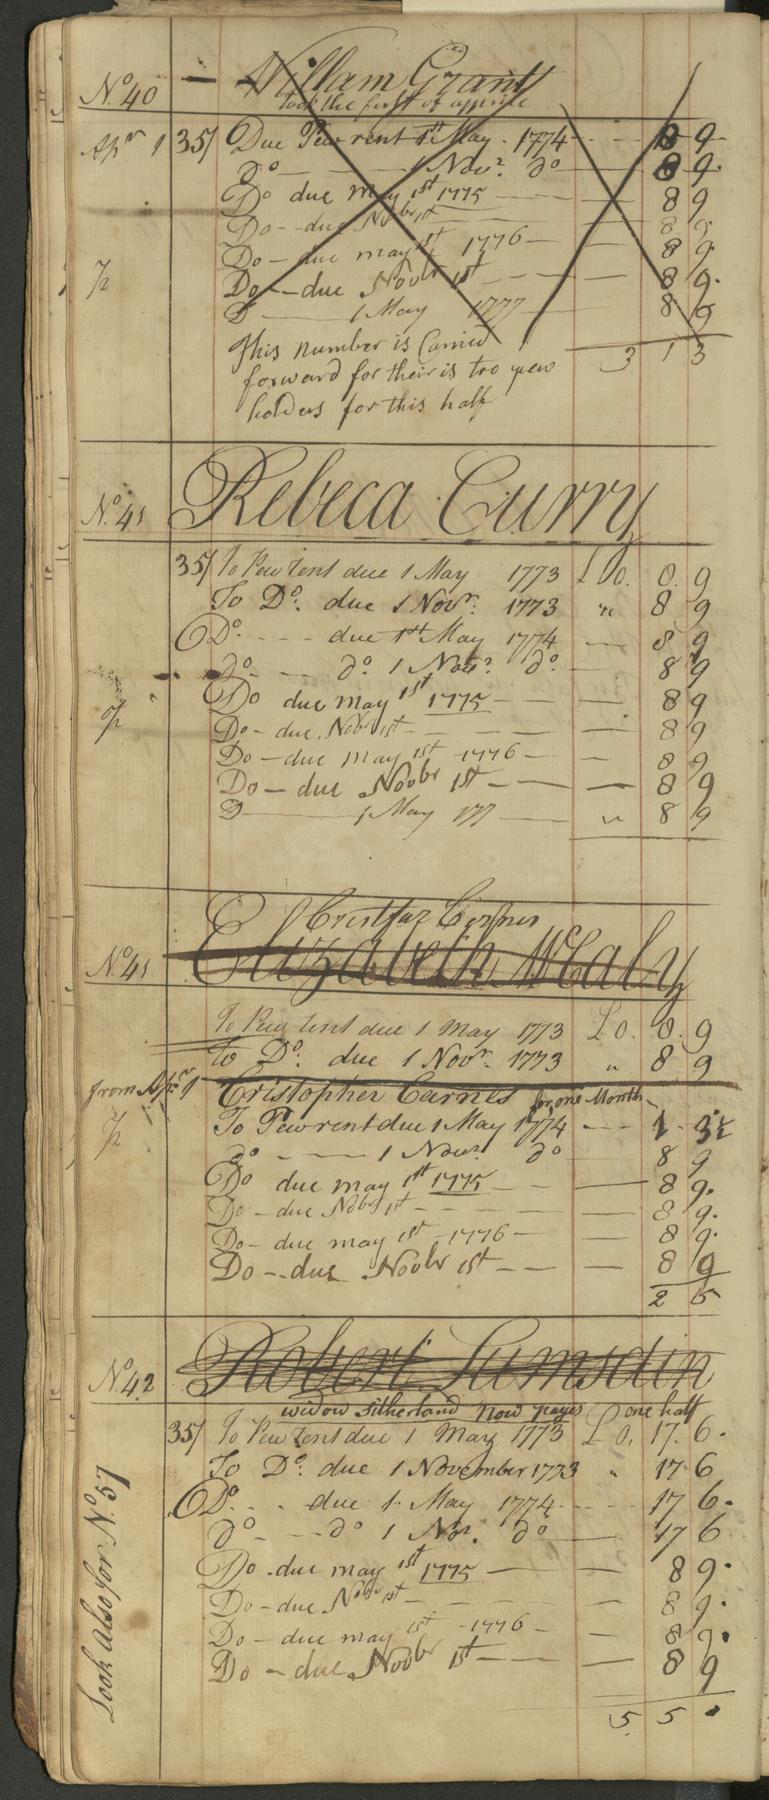 No. 40 — William Grant
took the first of apprile
Apr 1 35/ Due Pew rent 1st May - 1774 - - 8 9
do — 1 Novr. do — 8 9
Do due may 1st 1775 — 8 9
Do - - due Nobr 1st — 8 9
Do - due may 1st 1776 — 8 9
½ Do - - due Novbr 1st - - — 8 9
D — 1 May 1777 — 8 9
This number is Carried 3 1 3
forward for their is two pew
holders for this half
No. 41 Rebeca Curry
35/ To Pew Rent due 1 May 1773 £ 0. 8. 9
To Do. due 1 Novr. 1773 " 8 9
Do. - - - due 1st May 1774 — 8 9
do. — do. 1 Novr. do. — 8 9
Do due may 1st 1775 — 8 9
½ Do - due Nobr 1st — 8 9
Do - due may 1st 1776 — 8 9
Do - due Novbr 1st — 8 9
D — 1 May 177 — " 8 9
Elizabeth McCaly
No. 41
To Pew Rent due 1 May 1773 £ 0. 8. 9
To Do. due 1 Novr. 1773 " 8 9
from Apr 1 Cristopher Carnes for one Month
To Pew rent due 1 May 1774 - - - 1 - 3½
½ do - - — 1 Novr. do 8 9
Do due may 1st 1775 - - — 8 9.
Do - due Nobr 1st - - - — 8 9.
Do - due may 1st 1776 — 8 9.
Do - - due Novbr 1st - - — 8 9
2 5
No. 42 Robert Lumsdin
widow Sitherland now payes one half
35/ To Pew Rent due 1 May 1773 £ 0. 17. 6.
To Do. due 1 November 1773 " 17 6
Do. - - due 1 May 1774 - - - 17 6.
do - - - do 1 Nor. do — 17 6
Do - due may 1st 1775 — 8 9.
Do - due Nobr 1st - - - — 8 9.
Do - due may 1st - 1776 - — 8 9.
Do - due Novbr 1st - - — 8 9
5 5 .
Look also for No. 57